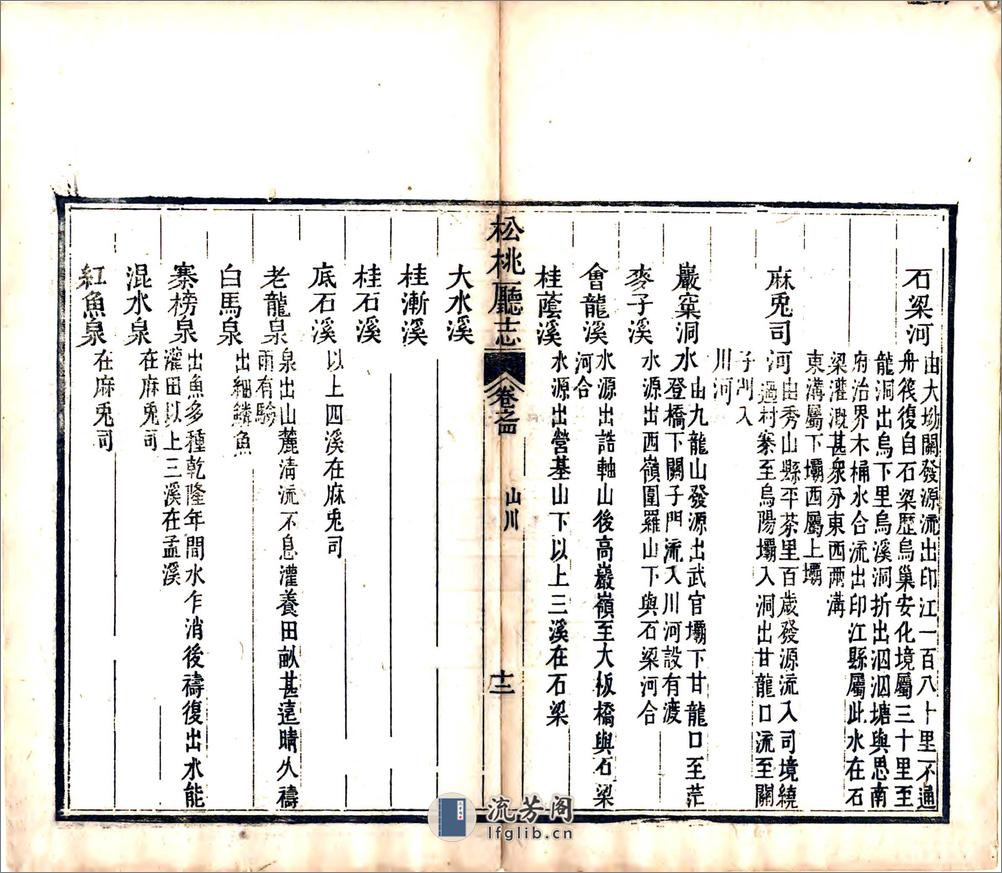 石梁河
由大坳關發源流出印江一百八十里不通
舟筏復自石梁歷烏巢安化境屬三十里至
龍洞出烏下里烏溪洞折出泗泗塘與思南
府治界木桶水合流出印江縣屬此水在石
梁灌溉甚衆分東西兩溝
東溝屬下壩西屬上壩
麻兎司河
由秀山縣平茶里百歲發源流入司境繞
過村寨至烏陽壩入洞出甘龍口流至關
子門入
川河
巖窠洞水
由九龍山發源出武官壩下甘龍口至茫
登橋下關子門流入川河設有渡
麥子溪
水源出西嶺圍羅山下與石梁河合
會龍溪
水源出誥軸山後高巖嶺至大板橋與石梁
河合
桂蔭溪
水源出營基山下以上三溪在石梁
松桃廳志
卷之四
山川
十二
大水溪
桂漸溪
桂石溪
底石溪
以上四溪在麻兎司
老龍泉
泉出山麓清流不息灌養田畝甚遠晴久禱
雨有驗
白馬泉
出細鱗魚
寨榜泉
出魚多種乾隆年間水乍消後禱復出水能
灌田以上三溪在孟溪
混水泉
在麻兎司
紅魚泉
在麻兎司
流芳阁
lfglib.cn